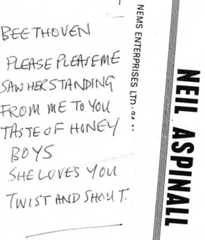 BEETHOVEN
PLEASE PLEASE ME
SAW HER STANDING
FROM ME TO YOU
TASTE OF HONEY
BOYS
SHE LOVES YOU
TWIST AND SHOUT.
NEMS ENTERPRISES LTD.
NEIL ASPINALL